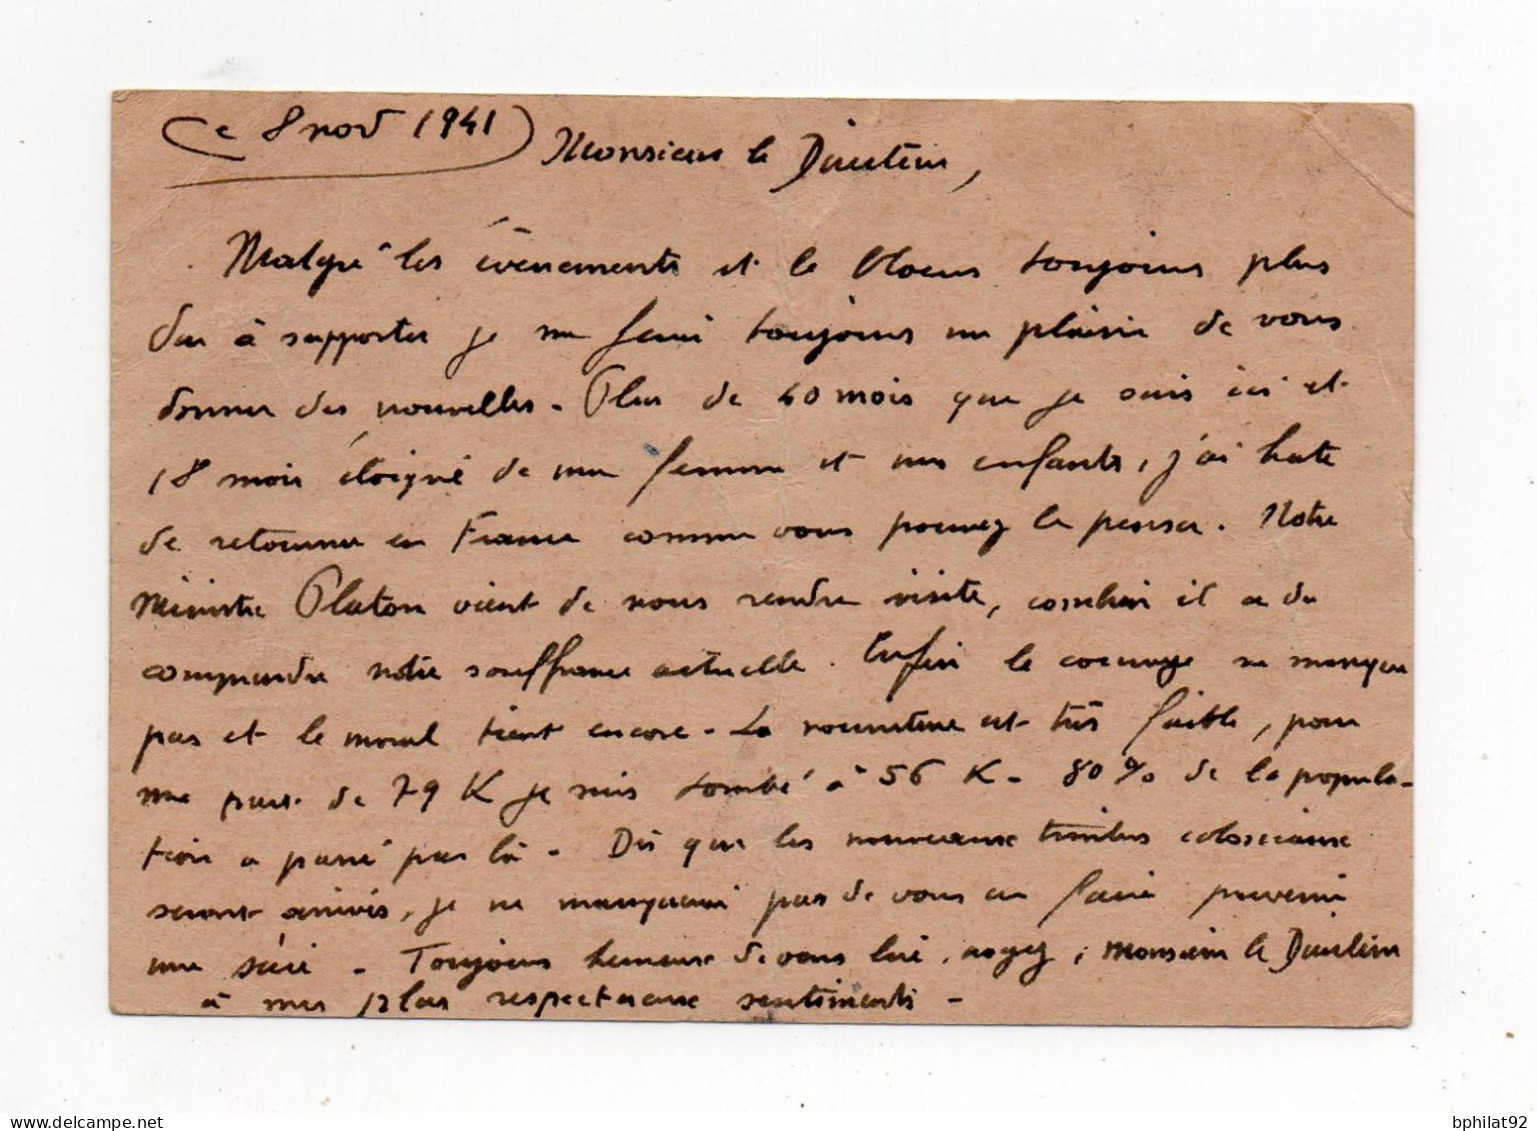 Ce 8 nov 1941
Monsieur le Directeur,
Malgré les évènements et le blocus toujours plus
dur à supporter je me ferai toujours un plaisir de vous
donner des nouvelles - Plus de 40 mois que je suis ici et
18 mois éloigné de ma femme et mes enfants, j'ai hate
de retourner en France comme vous pouvez le penser. Notre
Ministre Platon vient de nous rendre visite, combien il a du
comprendre notre souffrance actuelle. Enfin le courage ne manque
pas et le moral tient encore - La nourriture est très faible, pour
ma part de 79 K je suis tombé à 56 K - 80% de la popula-
tion a passé par là - Dès que les nouveaux timbres coloniaux
seront arrivés, je ne manquerai pas de vous en faire parvenir
une série - Toujours heureux de vous lire, soyez, Monsieur le Directeur
à mes plus respectueux sentiments -
bphilat92